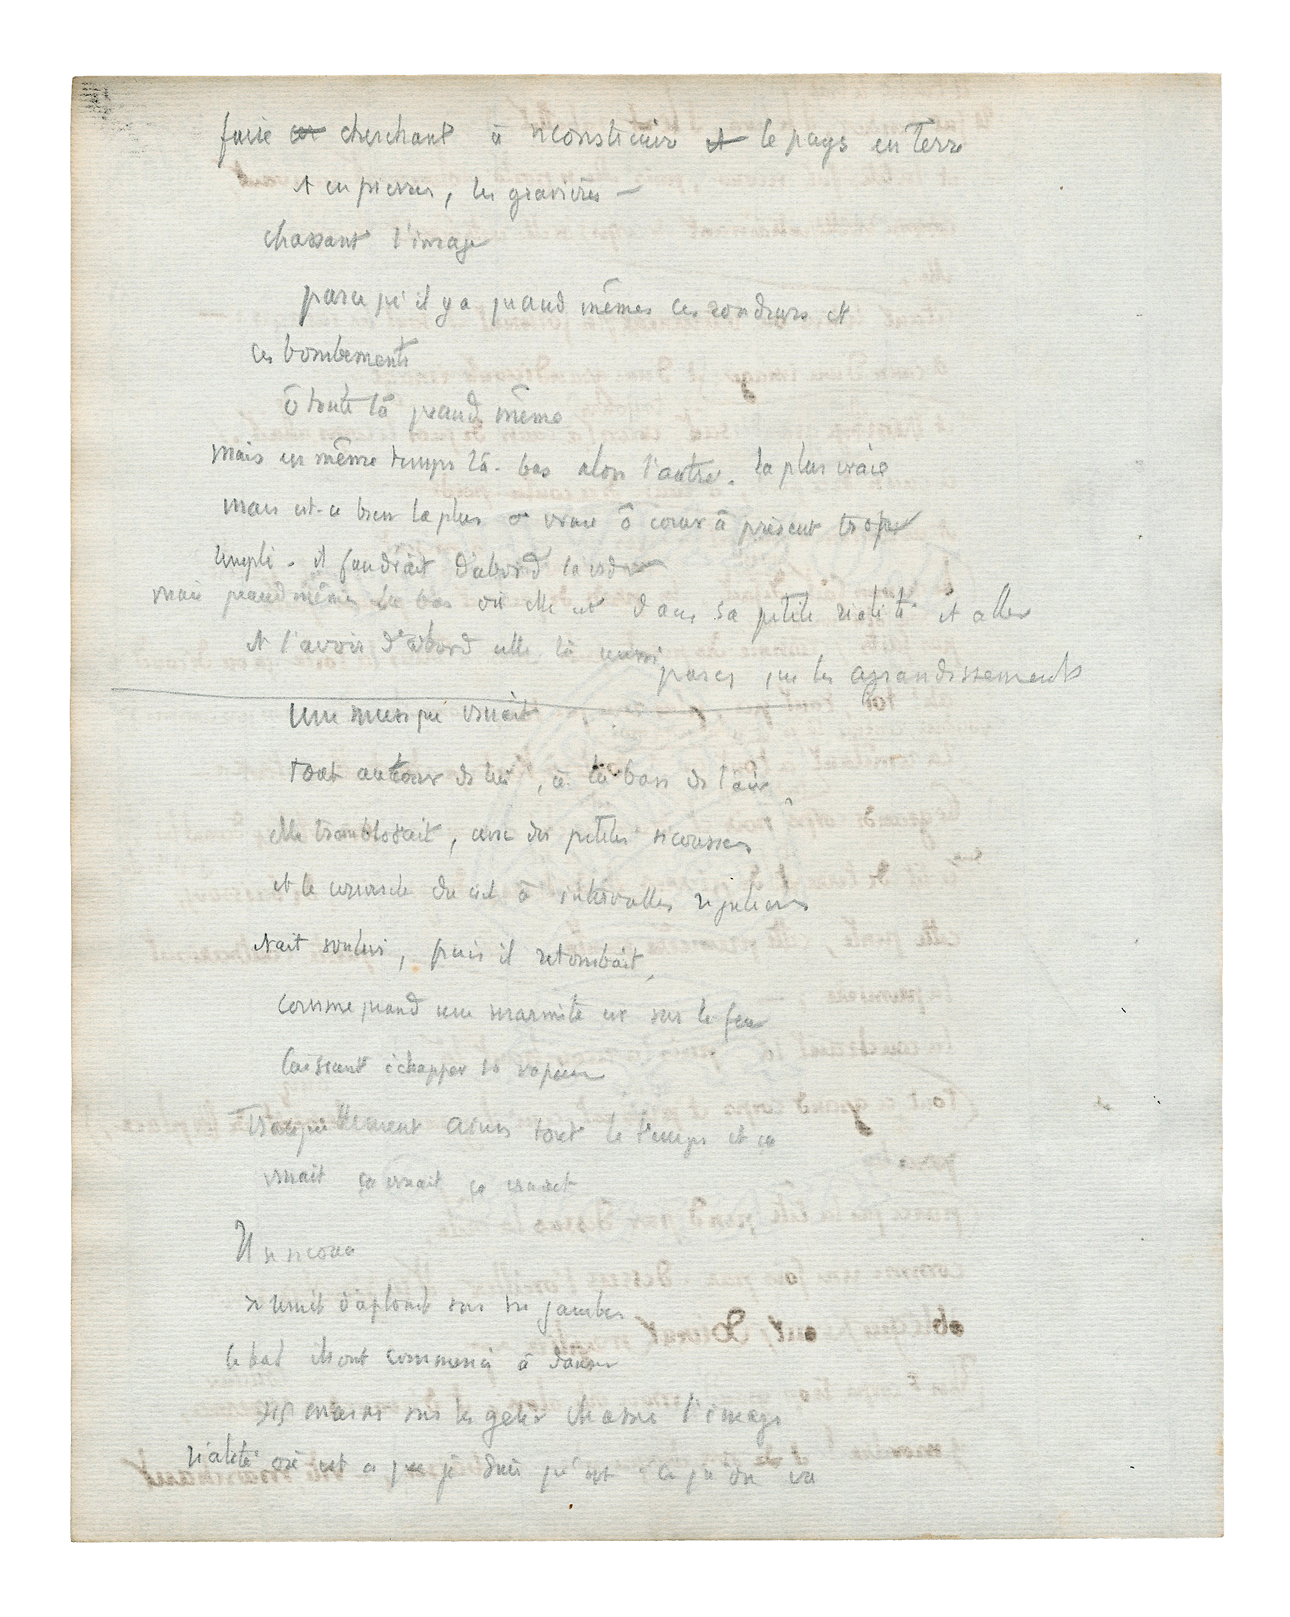 cherchant à reconstruire et le pays en terre
et en pierres, les gravières —
chassant l'image
parce qu'il y a quand même ces rondeurs et
ces bombements
ô toute là quand même
mais en même temps là-bas alors l'autre. la plus vraie
mais est-ce bien la plus vraie ô cœur à présent trop
empli. il faudrait d'abord
mais quand même là bas où elle est dans sa petite réalité et aller
et l'avoir d'abord elle là aussi parce que les agrandissements
Une musique venait
tout autour de lui, à la base de l'air
elle tremblotait, avec des petites secousses
et le couvercle du ciel à intervalles réguliers
était soulevé, puis il retombait,
comme quand une marmite est sur le feu
laissant échapper sa vapeur
Tranquillement ainsi tout le temps et ça
venait ça venait ça venait
Il se secoua
se remit d'aplomb sur ses jambes
le bal ils ont commencé à danser
mains sur les chasse l'image
réalité où est ce que je suis qu'est-ce que